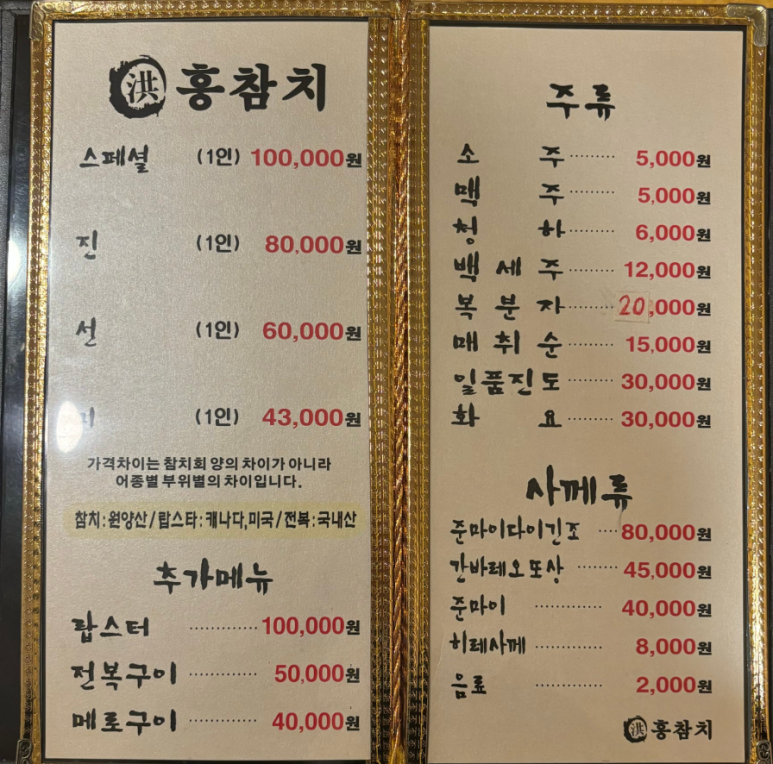 洪 홍참치
스페셜 (1인) 100,000원
진 (1인) 80,000원
선 (1인) 60,000원
(1인) 43,000원
가격차이는 참치회 양의 차이가 아니라
어종별 부위별의 차이입니다.
참치:원양산/랍스타:캐나다,미국/전복:국내산
추가메뉴
랍스터 ············ 100,000원
전복구이 ············ 50,000원
메로구이 ············ 40,000원
주류
소 주 ········ 5,000원
맥 주 ········ 5,000원
청 하 ········ 6,000원
백 세 주 ········ 12,000원
복 분 자 ········ 20,000원
매 취 순 ········ 15,000원
일품진로 ········ 30,000원
화 요 ········ 30,000원
사께류
준마이다이긴조 ··· 80,000원
간바레오또상 ······ 45,000원
준마이 ············ 40,000원
히레사께 ············ 8,000원
음료 ············ 2,000원
洪 홍참치